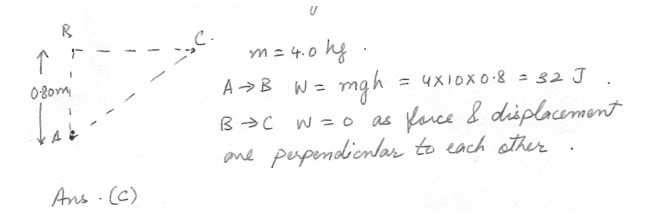 B
C.
0.80m
A
m = 4.0 kg.
A → B W = mgh = 4x10x0.8 = 32 J.
B → C W = 0 as force & displacement
are perpendicular to each other.
Ans. (C)